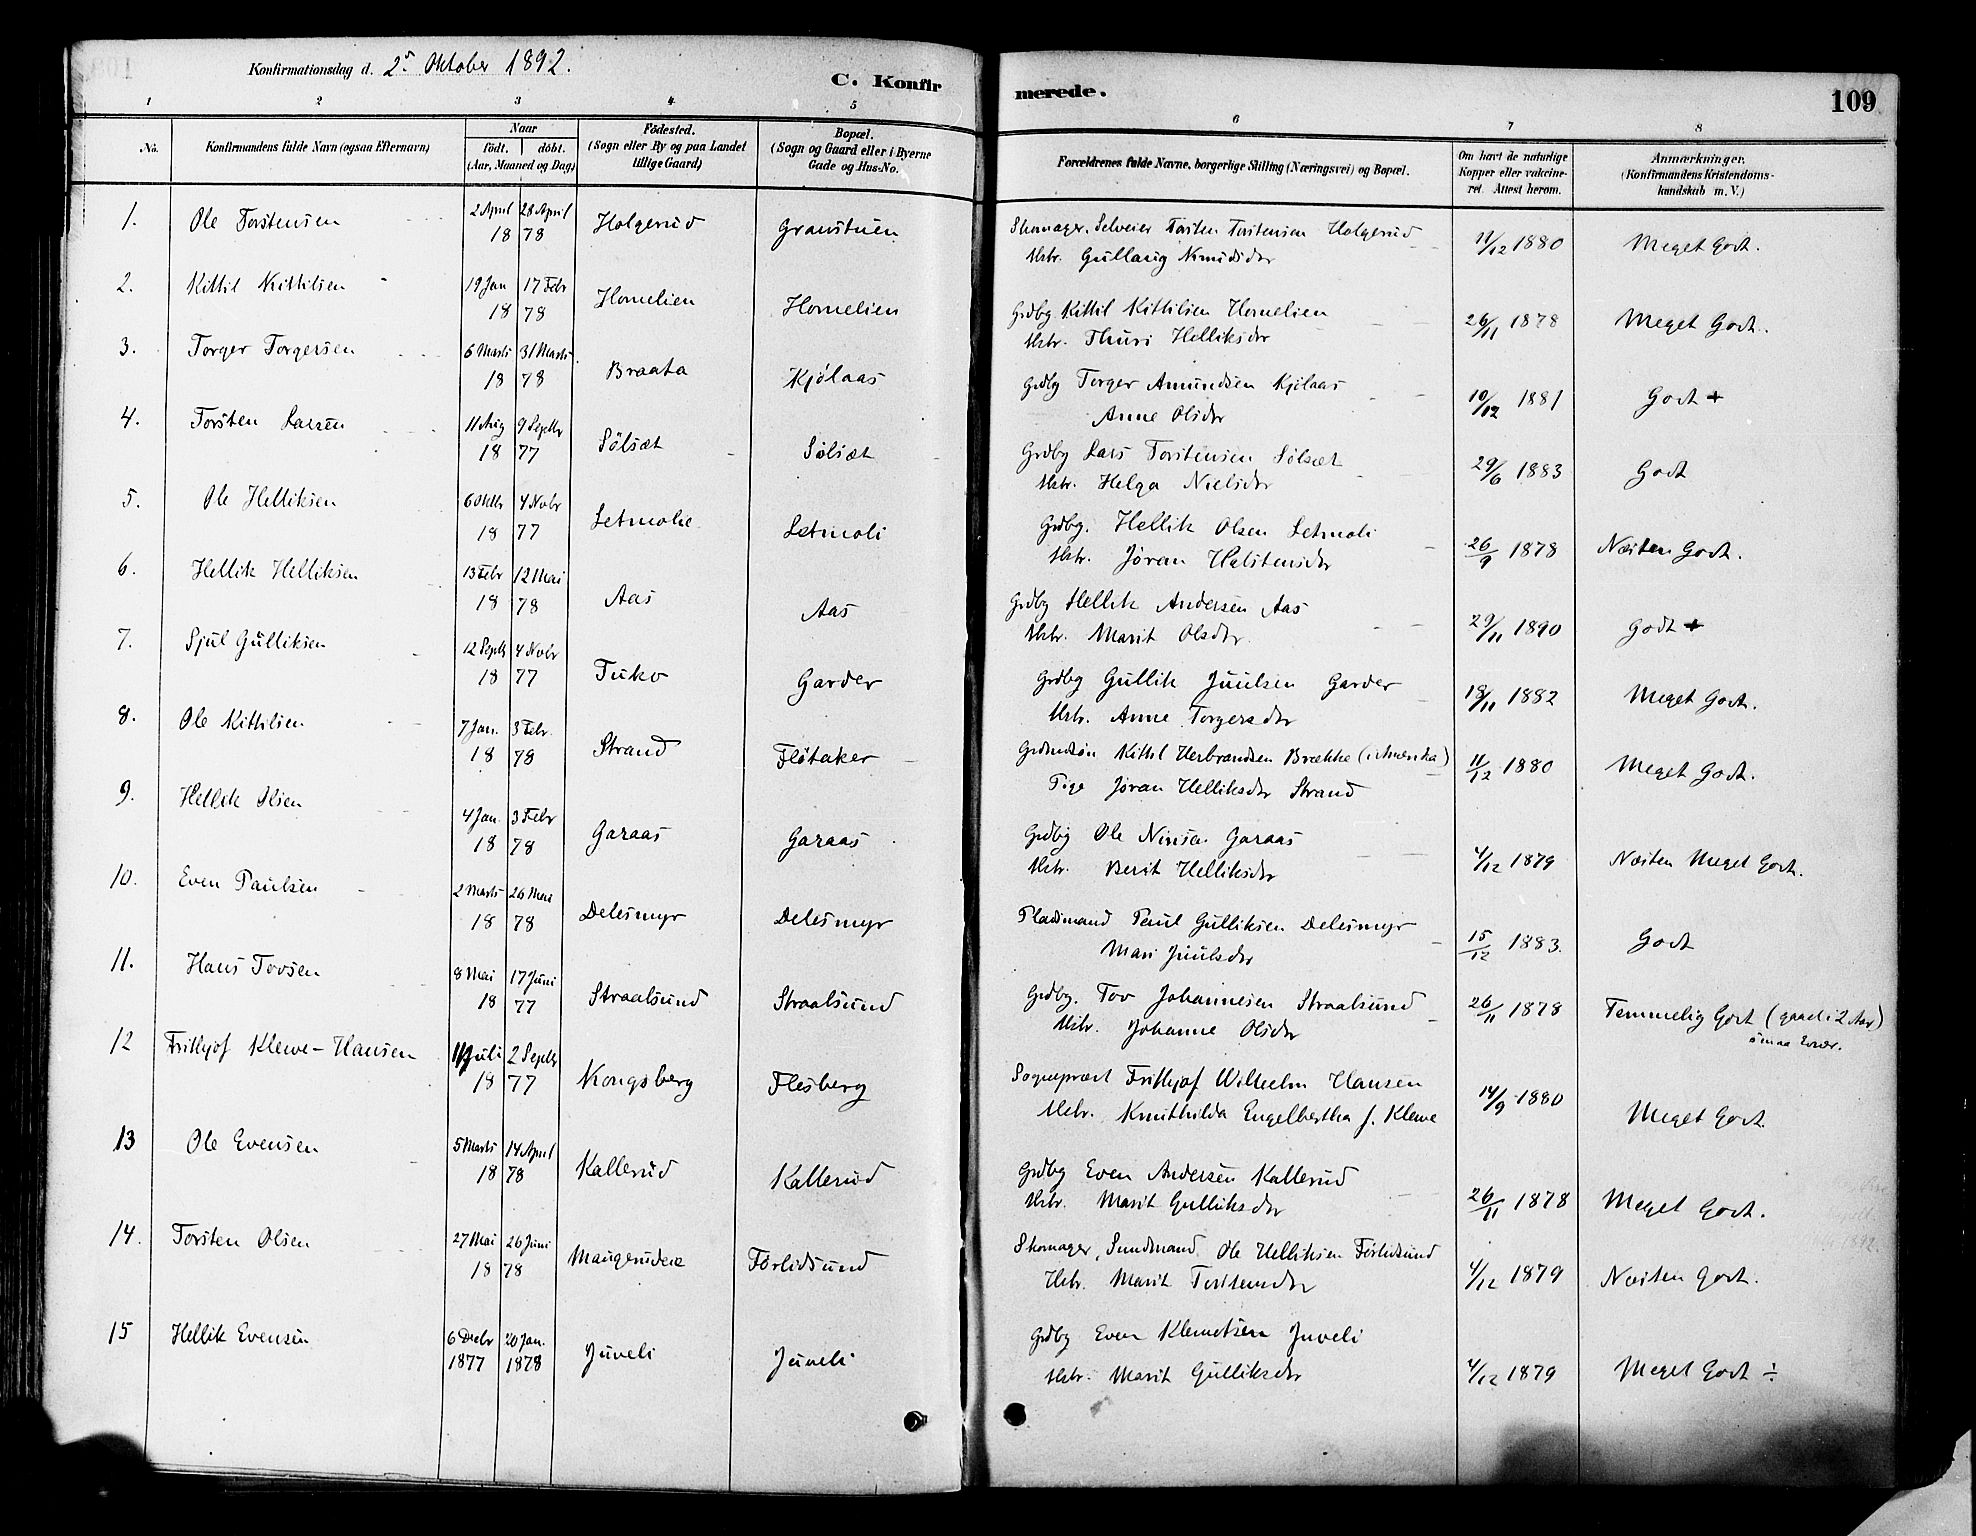 Konfirmationsdag d. 2den Oktober 1892.
C. Konfir
merede.
109
1 2 3 4 5 6 7 8
No.
Konfirmandens fulde Navn (ogsaa Efternavn)
Naar
født. døbt.
(Aar, Maaned og Dag)
Fødested.
(Sogn eller By og paa Landet
tillige Gaard)
Bopæl.
(Sogn og Gaard eller i Byerne
Gade og Hus-No.
Forældrenes fulde Navne, borgerlige Stilling (Næringsvei) og Bopæl.
Om havt de naturlige
Kopper eller vaccine-
ret. Attest herom.
Anmærkninger.
(Konfirmandens Kristendoms-
kundskab m. V.)
1. Ole Torstensen 2 April 18 78 28 April Holgerud Granstuen Skomager, Selveier Torsten Torstensen Holgerud 11/12 1880 Meget Godt.
Hstr. Gullaug
2. Kittil Kittilsen 19 Jan 17 Febr 18 78 Homelien Homelien Grdbg Kittil Kittilsen Homelien 26/11 1878 Meget Godt.
Hstr. Thuri Helliksdtr
3. Torger Torgersen 6 Marts 31 Marts 18 78 Braata Kjølaas Grdbg Torger Amundsen Kjølaas 10/12 1881 Godt +
Anne Olsdtr
4. Torsten Larsen 11 Aug 9 Septbr 18 77 Sølsæt Sølsæt Grdbg Lars Torstensen Sølsæt 29/6 1883 Godt
Hstr. Helga Nielsdtr
5. Ole Helliksen 6 Oktbr 4 Novbr 18 77 Setmolie Setmoli Grdbg. Hellik Olsen Setmoli 26/9 1878 Næsten Godt.
Hstr. Jøran Halstensdtr
6. Hellik Helliksen 13 Febr 12 Mai 18 78 Aas Aas Grdbg Hellik Andersen Aas 29/11 1890 Godt +
Hstr. Marit Olsdtr.
7. Sjul Gulliksen 12 Septb 4 Novbr 18 77 Tuko Garder Grdbg Gullik Juulsen Garder 18/11 1882 Meget Godt.
Hstr. Anne Torgersdtr
8. Ole Kittilsen 7 Jan. 3 Febr. 18 78 Strand Fløtaker Grdmdsøn Kittil Herbrandsen Brække (i Amerika) 11/12 1880 Meget Godt.
Pige Jøran Helliksdtr Strand
9. Hellik Olsen 4 Jan. 3 Febr 18 78 Garaas Garaas Grdbg Ole Garaas 4/12 1879 Næsten Meget Godt.
Hstr. Berit Helliksdtr
10. Even Paulsen 2 Marts 26 Mai 18 78 Delesmyr Delesmyr Pladsmand Paul Gulliksen Delesmyr 15/12 1883. Godt
Mari Juulsdtr
11. Hans Tovsen 8 Mai 17 Juni 18 77 Straalsund Straalsund Grdbg. Tov Johannesen Straalsund 26/11 1878 Temmelig Godt (gaaet i 2 Aar)
Hstr. Johanne Olsdtr
12 Frithjof Klewe-Hansen 11 Juli 2 Septbr 18 77 Kongsberg Flesberg Sogneprest Frithjof Wilhelm Hansen 14/9 1880 Meget Godt.
Hstr. Engelbertha f. Klewe
13 Ole Evensen 5 Marts 14 April 18 78 Kallerud Kallerud Grdbg Even Andersen Kallerud 26/11 1878 Meget Godt.
Hstr. Marit Gulliksdtr
14. Torsten Olsen 27 Mai 26 Juni 18 78 Førlidsund Skomager, Sundmand Ole Helliksen Førlidsund 4/12 1879 Næsten Godt.
Hstr. Marit Torstensdtr
15 Hellik Evensen 6 Decbr 20 Jan. 1877 1878 Juveli Juveli Grdbg Even Klemetsen Juveli 4/12 1879 Meget Godt ÷
Hstr. Marit Gulliksdtr